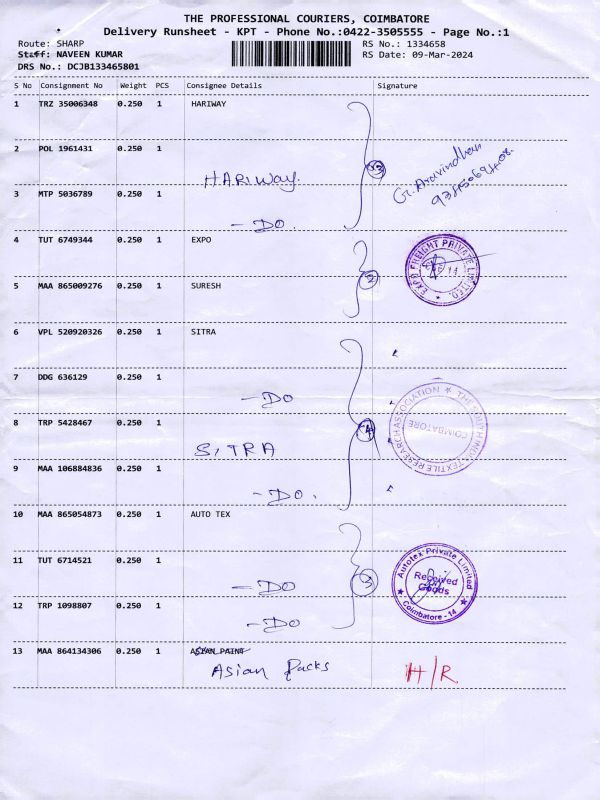 THE PROFESSIONAL COURIERS, COIMBATORE
Delivery Runsheet - KPT - Phone No.:0422-3505555 - Page No.:1
Route: SHARP RS No.: 1334658
Staff: NAVEEN KUMAR RS Date: 09-Mar-2024
DRS No.: DCJB133465801
S No Consignment No Weight PCS Consignee Details Signature
1 TRZ 35006348 0.250 1 HARIWAY
2 POL 1961431 0.250 1 HARIWAY. 3 G. Aravindhan
3 MTP 5036789 0.250 1 -DO.
4 TUT 6749344 0.250 1 EXPO
EXPO FREIGHT PRIVATE LIMITED.
5 MAA 865009276 0.250 1 SURESH 2
6 VPL 520920326 0.250 1 SITRA
7 DDG 636129 0.250 1 -DO
8 TRP 5428467 0.250 1 SITRA 4
THE SOUTH INDIA TEXTILE RESEARCH ASSOCIATION
COIMBATORE
9 MAA 106884836 0.250 1 -DO.
10 MAA 865054873 0.250 1 AUTO TEX
11 TUT 6714521 0.250 1 -DO 3
Autotex Private Limited
Received
Goods
Coimbatore - 14
12 TRP 1098807 0.250 1 -DO
13 MAA 864134306 0.250 1 ASIAN PAINT
Asian Packs H/R